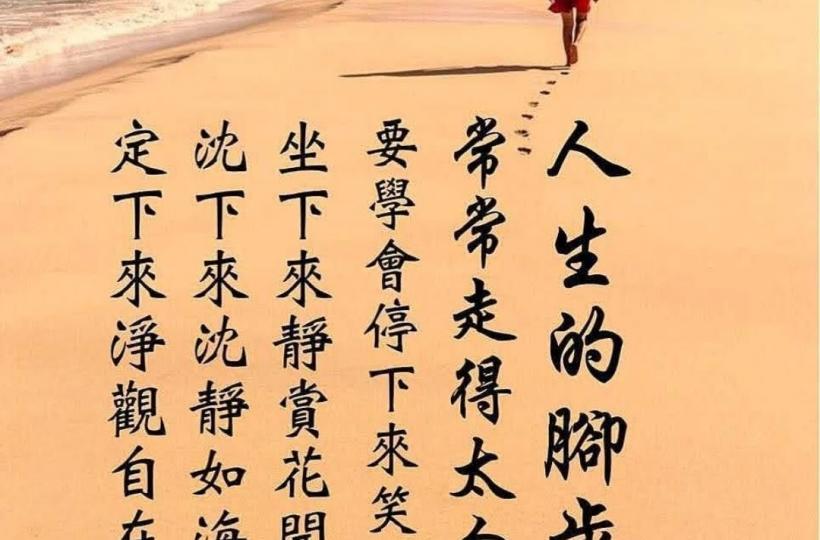 人生的腳步
常常走得太
要學會停下來笑
坐下來靜賞花開
沈下來沈靜如海
定下來淨觀自在